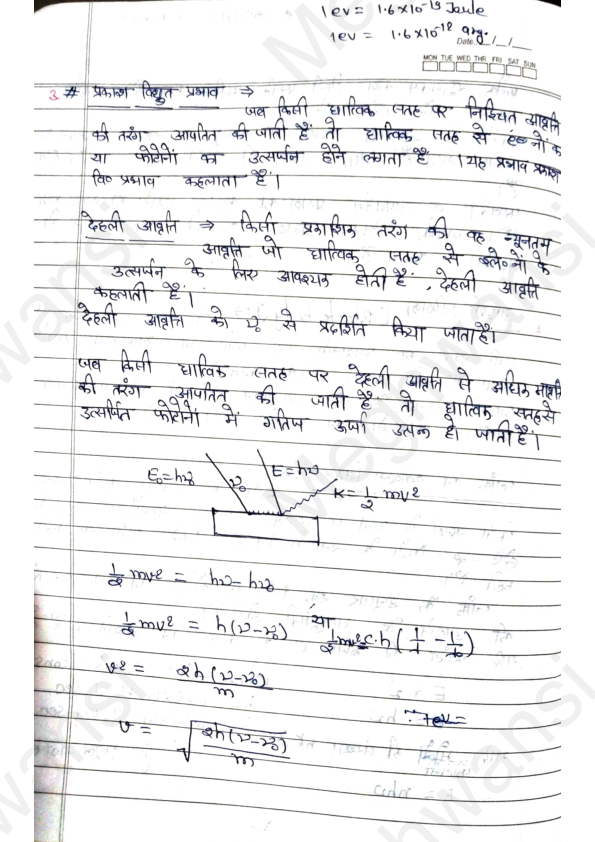 1 ev = 1.6×10⁻¹⁹ Joule
1ev = 1.6×10⁻¹² erg.
Date: / /
MON TUE WED THR FRI SAT SUN
3 # प्रकाश विद्युत प्रभाव ⇒
जब किसी धात्विक सतह पर निश्चित आवृति
की तरंग आपतित की जाती हैं तो धात्विक सतह से इ०नों क
या फोटोनों का उत्सर्पन होने लगता हैं । यह प्रभाव प्रकाश
वि० प्रभाव कहलाता हैं।
देहली आवृति ⇒ किसी प्रकाशिक तरंग की वह न्यूनतम
आवृति जो धात्विक सतह से इले०नों के
उत्सर्पन के लिए आवश्यक होती हैं, देहली आवृति
कहलाती हैं।
देहली आवृति को ν₀ से प्रदर्शित किया जाता हैं।
जब किसी धात्विक सतह पर देहली आवृति से अधिक आवृति
की तरंग आपतित की जाती हैं तो धात्विक सतह से
उत्सर्पित फोटोनों में गतिज ऊर्जा उत्पन्न हो जाती हैं।
E₀=hν₀ ν₀ E=hν K=1/2 mv²
1/2 mv² = hν-hν₀
1/2 mv² = h(ν-ν₀) या 1/2 mv² c.h(1/λ - 1/λ₀)
v² = 2h(ν-ν₀)/m
v = √2h(ν-ν₀)/m
Meghwansi